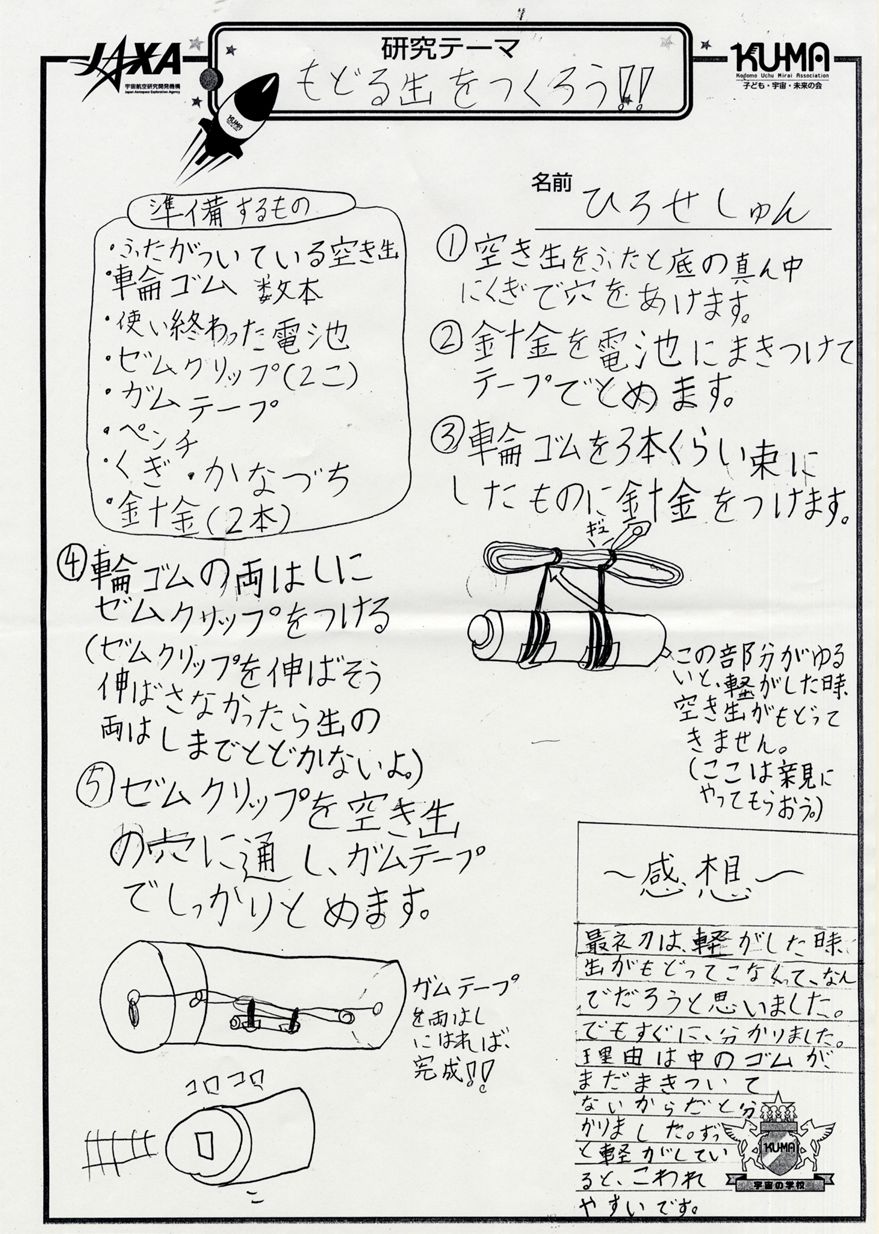 JAXA
宇宙航空研究開発機構
Japan Aerospace Exploration Agency
研究テーマ
もどる缶をつくろう!!
KU-MA
Kodomo Uchu Mirai Association
子ども・宇宙・未来の会
KU-MA
名前 ひろせしゅん
準備するもの
・ふたがついている空き缶
・車輪ゴム 数本
・使い終わった電池
・ゼムクリップ(2こ)
・ガムテープ
・ペンチ
・くぎ・かなづち
・針金(2本)
①空き缶をふたと底の真ん中
にくぎで穴をあけます。
②針金を電池にまきつけて
テープでとめます。
③車輪ゴムを3本くらい束に
したものに針金をつけます。
ギュー
この部分がゆる
いと、転がした時、
空き缶がもどって
きません。
(ここは親に
やってもらおう。)
④輪ゴムの両はしに
ゼムクリップをつける
(ゼムクリップを伸ばそう
伸ばさなかったら缶の
両はしまでとどかないよ。)
⑤ゼムクリップを空き缶
の穴に通し、ガムテープ
でしっかりとめます。
ガムテープ
を両はし
にはれば、
完成!!
コロコロ
〜感想〜
最初は、転がした時、
缶がもどってこなくって、なん
でだろうと思いました。
でもすぐに、分かりました。
理由は中のゴムが
まだまきついて
ないからだと分
かりました。ずっ
と転がしてい
ると、こわれ
やすいです。
KU-MA
宇宙の学校